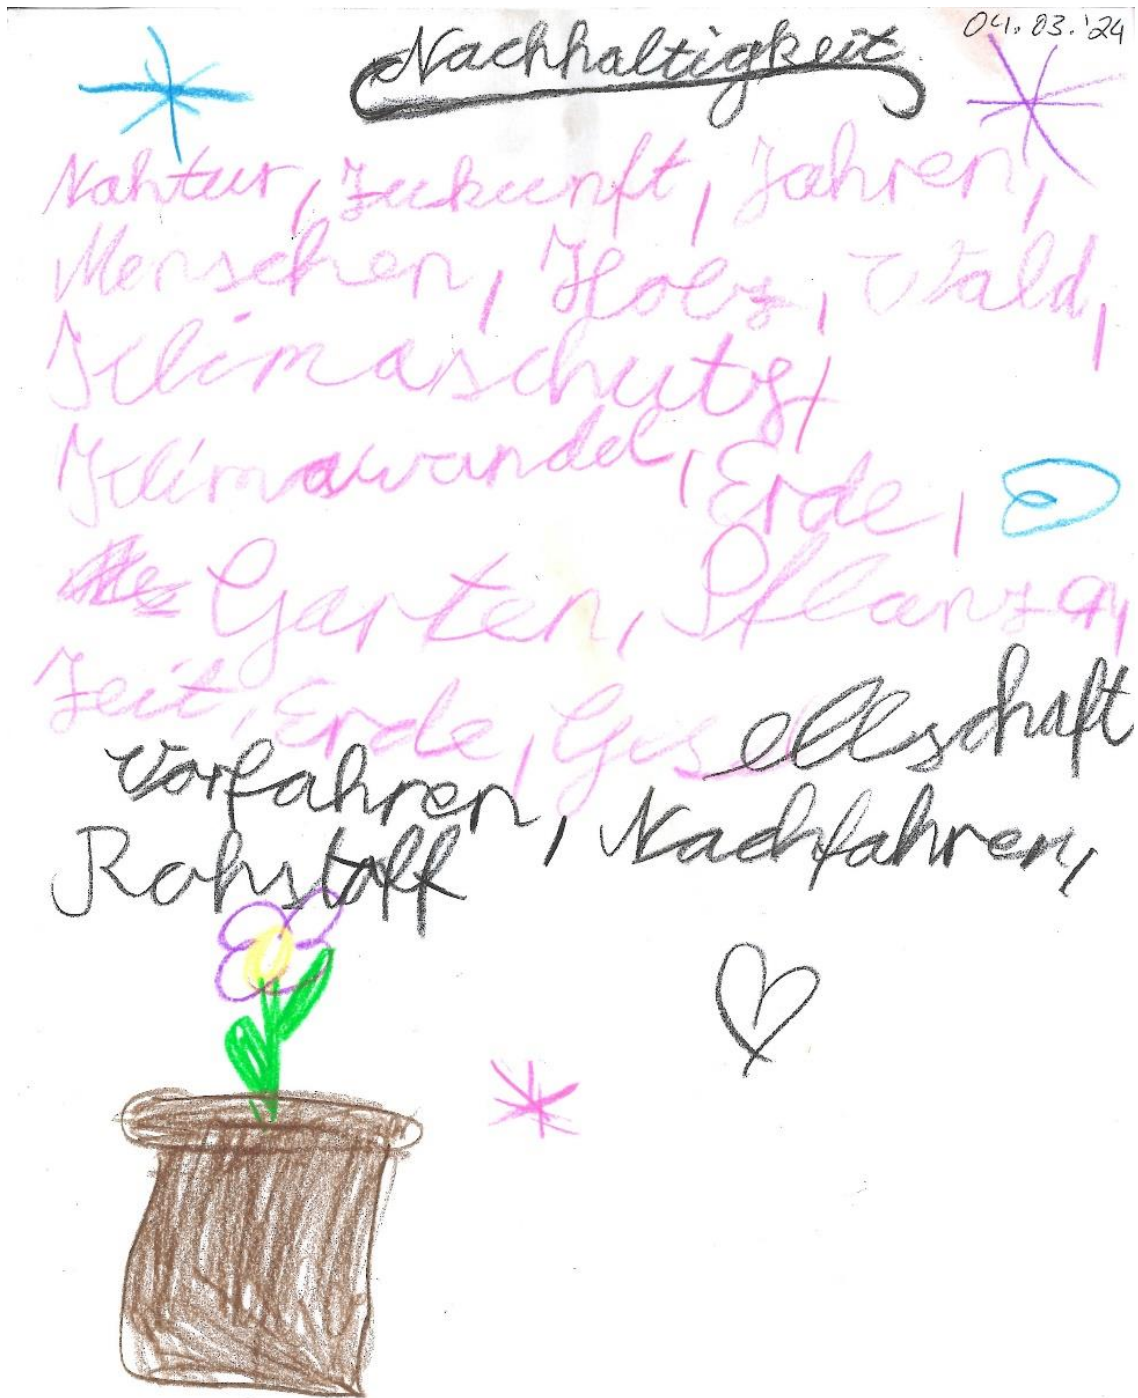 04.03.'24
Nachhaltigkeit
Nahtur, Zukunft, Jahren,
Menschen, Holz, Wald,
Klimaschutz,
Klimawandel, Erde,
Garten, Pflanzen,
Zeit, Erde, Gesellschaft
Vorfahren, Nachfahren,
Rohstoff